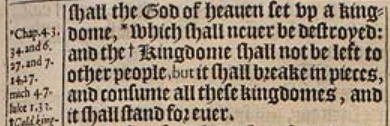 shall the God of heauen set vp a king-
dome, *Which shall neuer be destroyed:
and the † Kingdome shall not be left to
other people, but it shall breake in pieces,
and consume all these kingdomes, and
it shall stand for euer.
*Chap.4.3.
34.and 6.
27.and 7.
14.27.
mich 4.7.
luke 1.32.